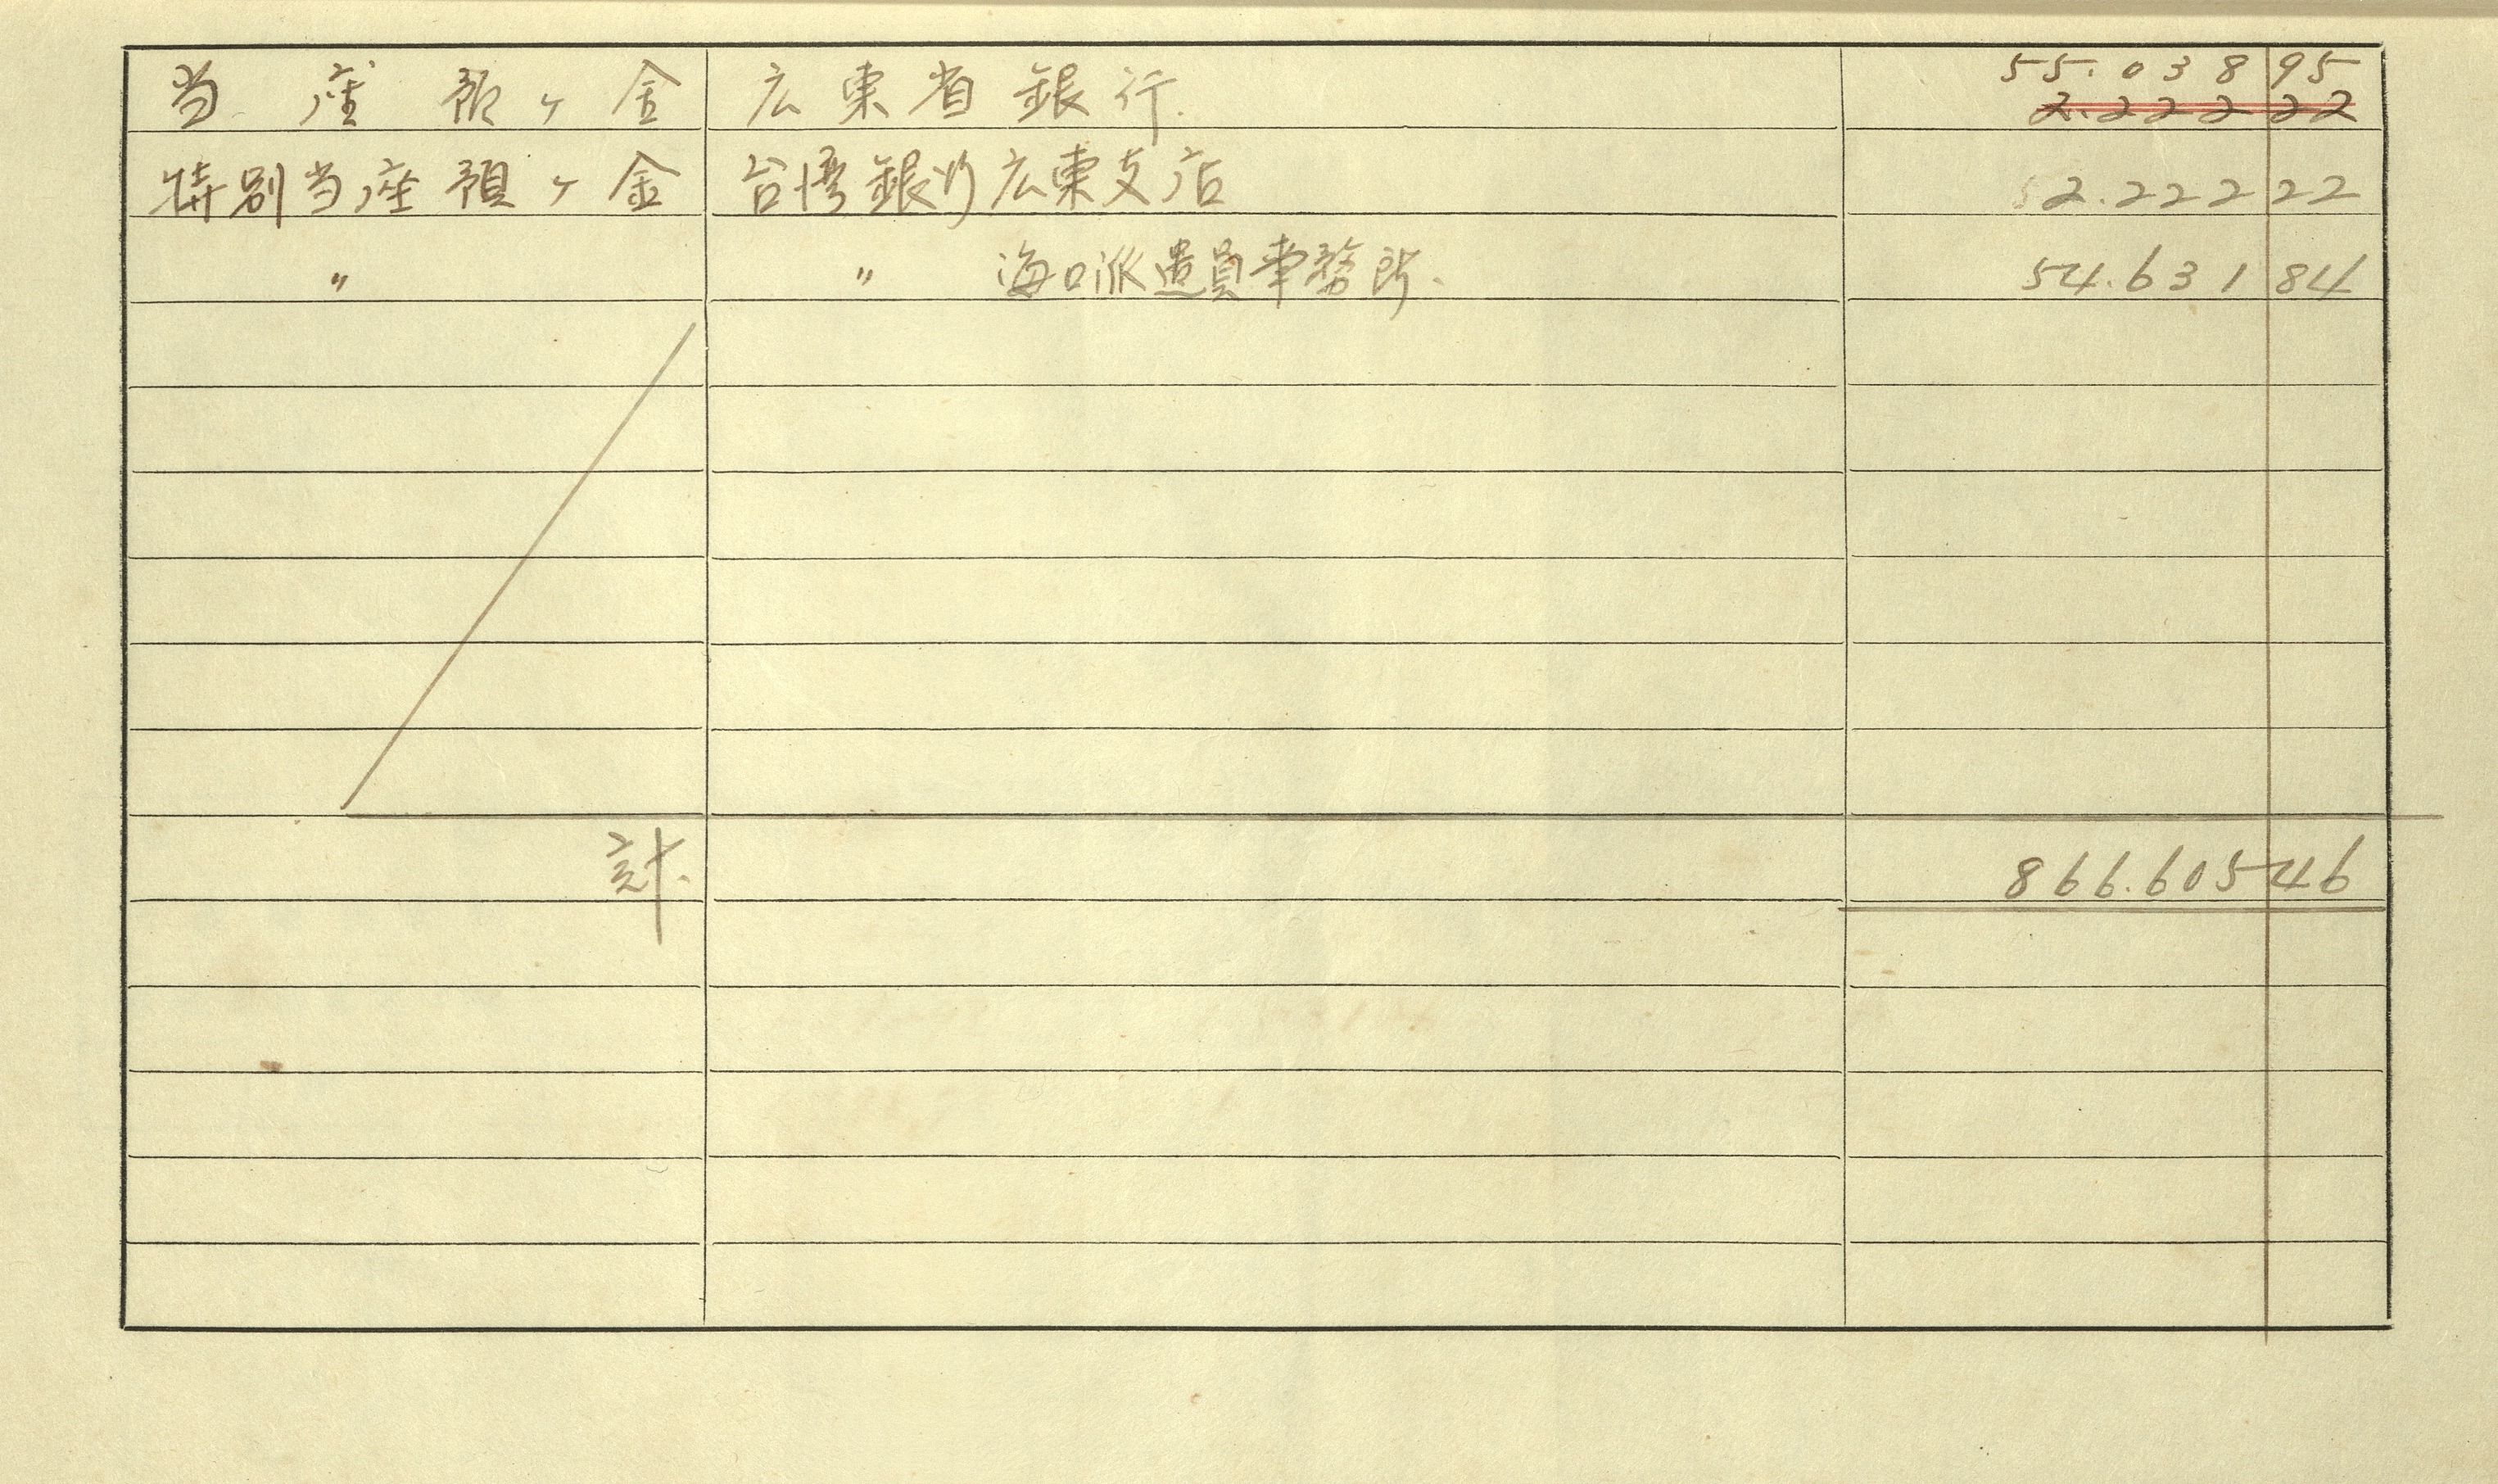 当座預ケ金 広東省銀行. 55.038 95
2.222 22
特別当座預ケ金 台湾銀行広東支店 2.222 22
〃 〃 海口派遣員事務所. 54.631 84
計. 866.605 46